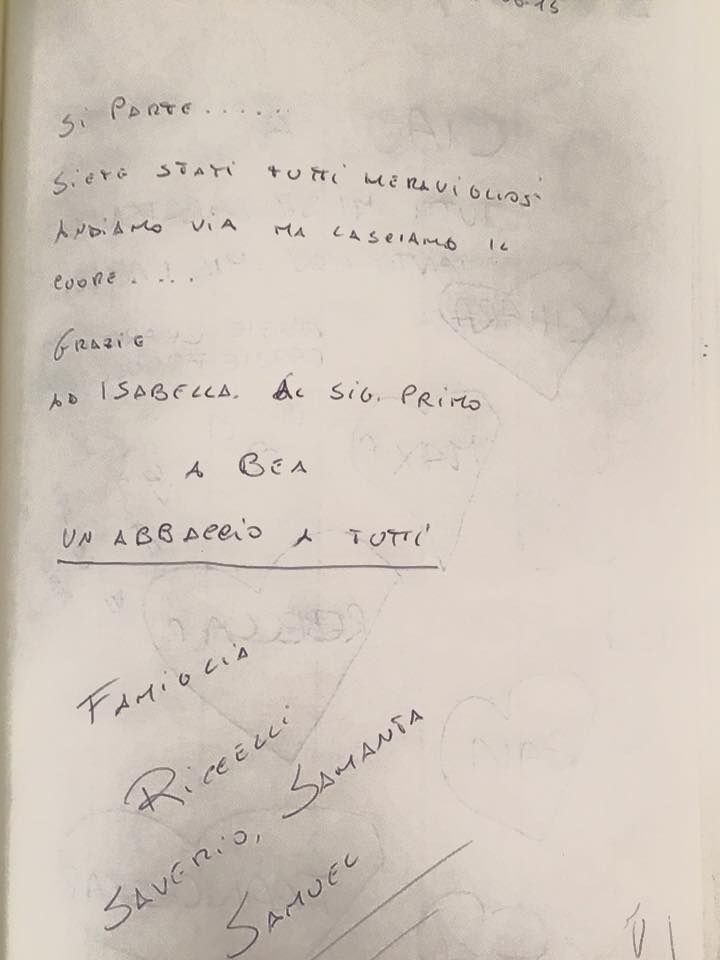 Si PARTE......
SiETE STATI TUTTI MERAVIGLIOSi
ANDIAMO VIA MA LASCIAMO IL
CUORE....
GRAZIE
AD ISABELLA. AL SIG. PRIMO
A BEA
UN ABBACCIO A TUTTI
FAMIGLIA
RICCELLI
SAVERIO, SAMANTA
SAMUEL